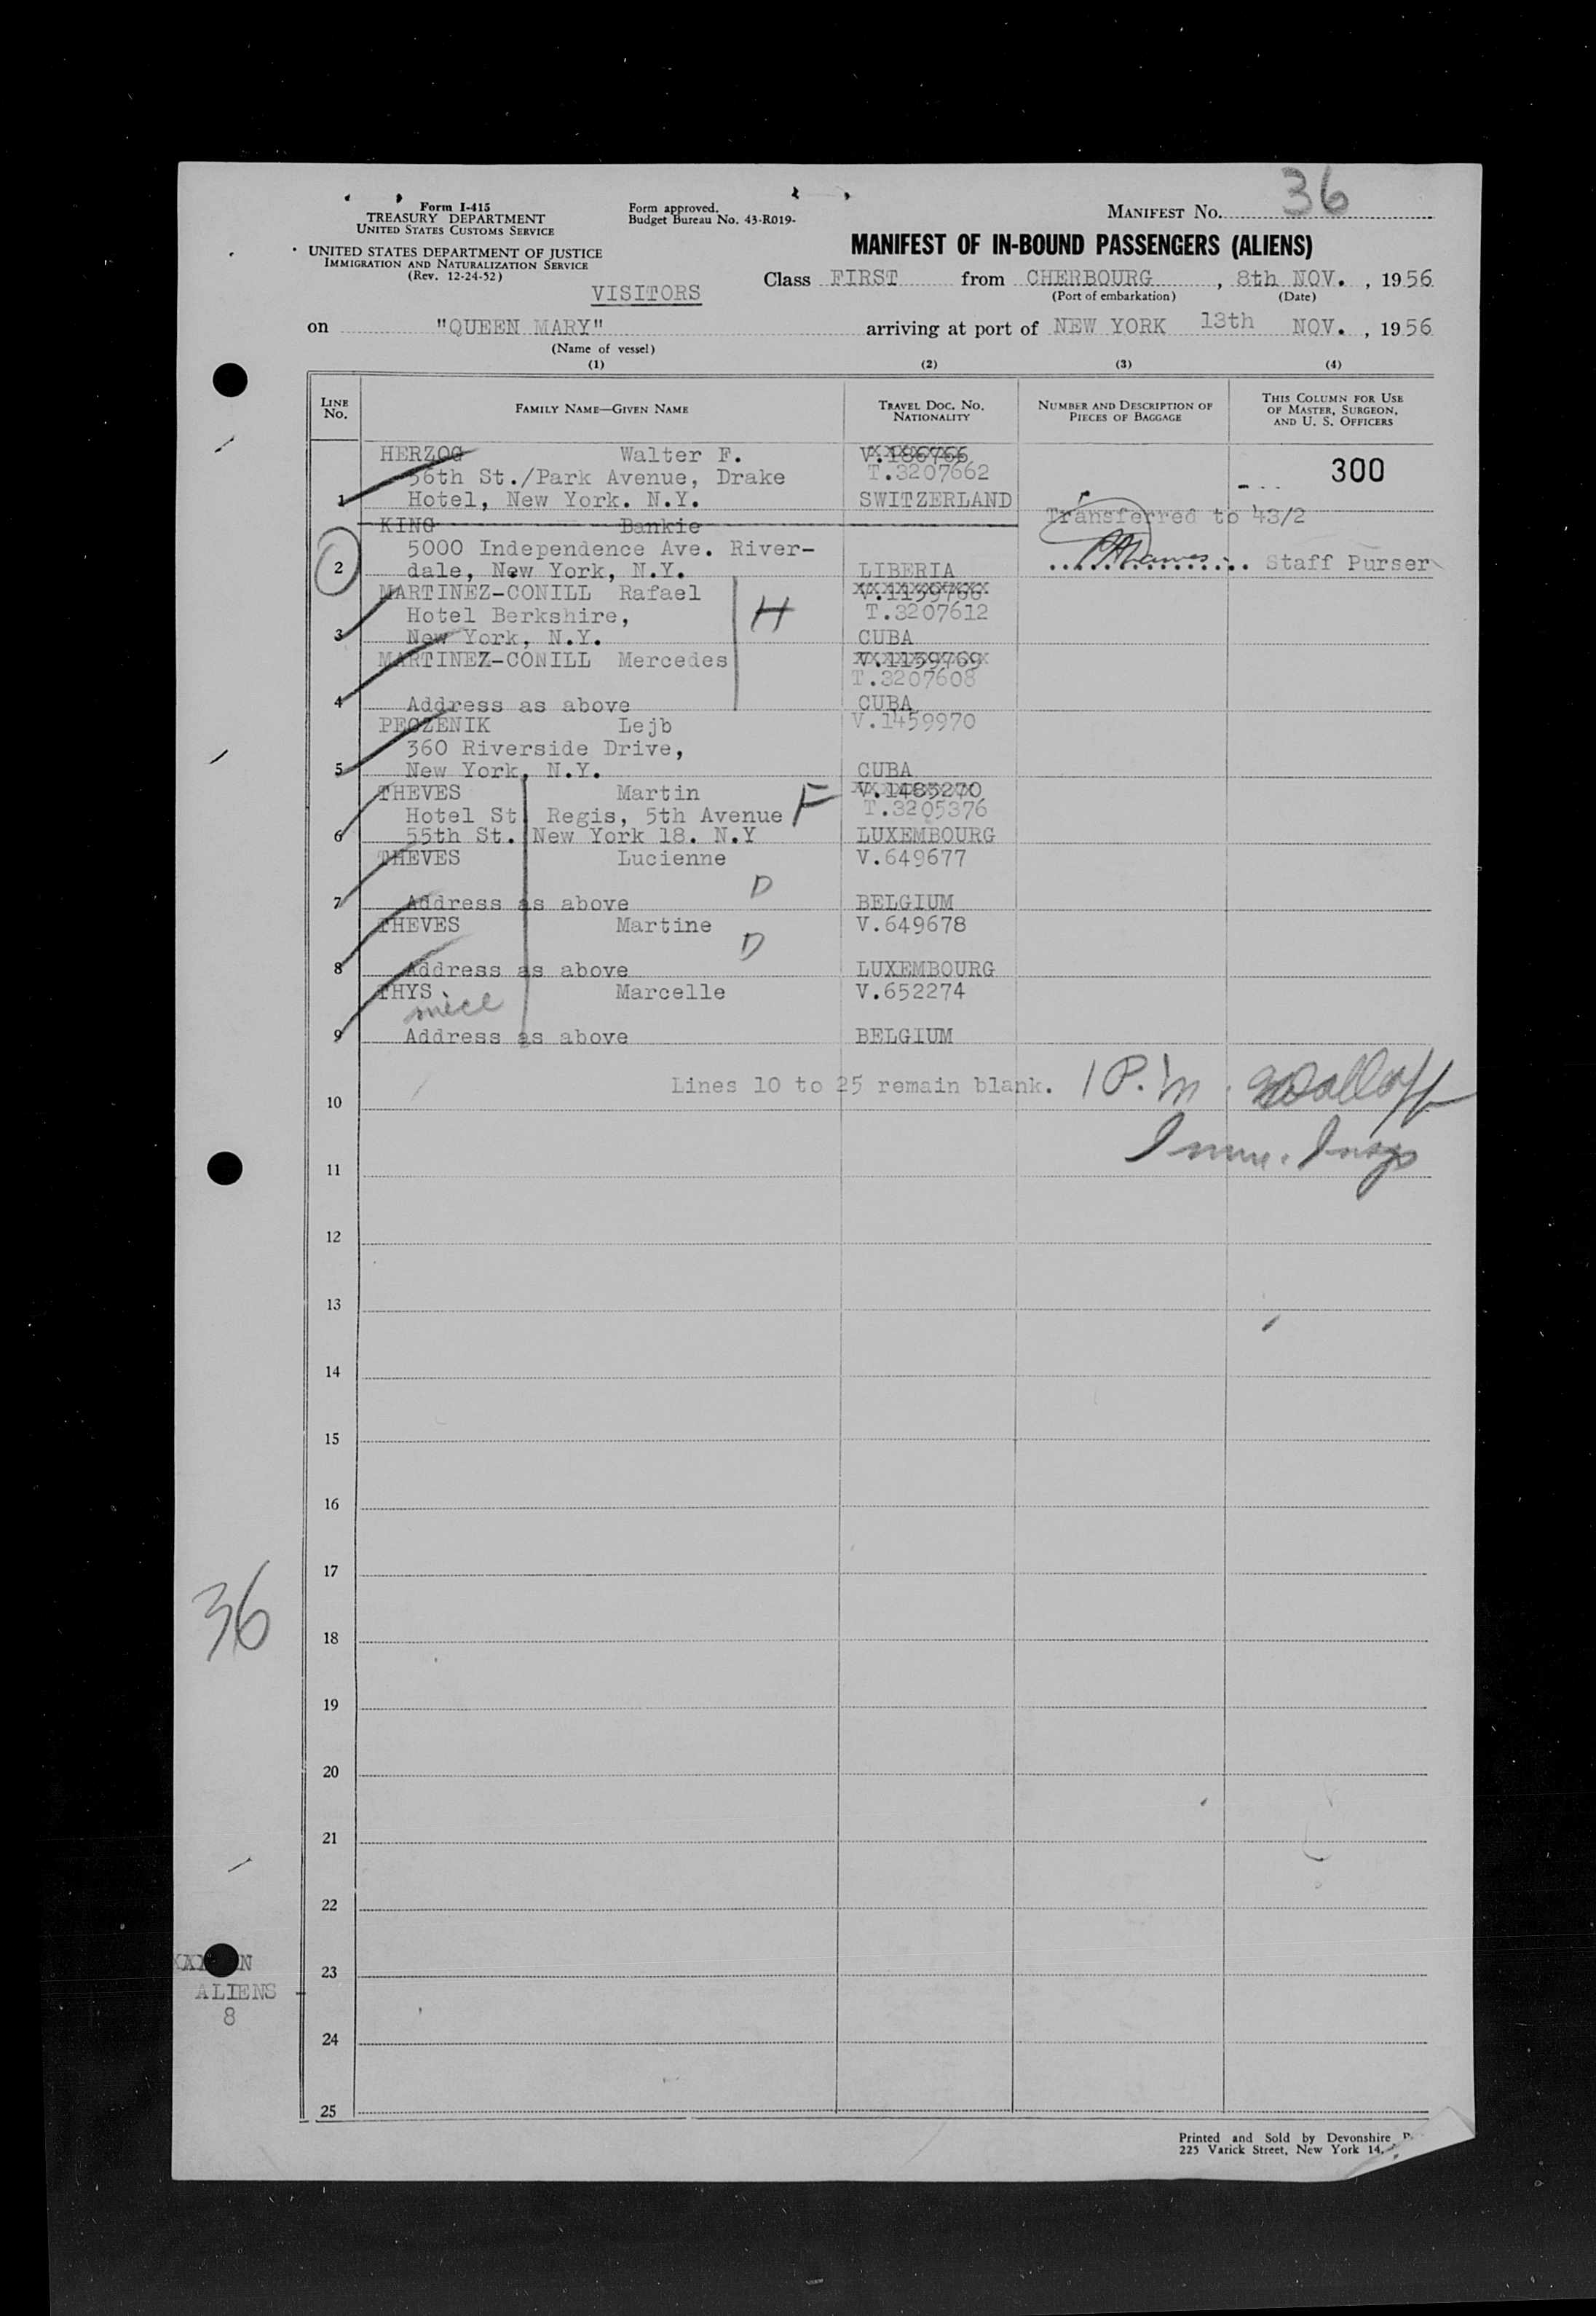 36
Form I-415
TREASURY DEPARTMENT
UNITED STATES CUSTOMS SERVICE
Form approved.
Budget Bureau No. 43-R019-
MANIFEST NO. 36
UNITED STATES DEPARTMENT OF JUSTICE
IMMIGRATION AND NATURALIZATION SERVICE
(Rev. 12-24-52)
MANIFEST OF IN-BOUND PASSENGERS (ALIENS)
VISITORS
Class FIRST from CHERBOURG, 8th NOV., 1956
(Port of embarkation) (Date)
on "QUEEN MARY" arriving at port of NEW YORK 13th NOV., 1956
(Name of vessel)
(1) (2) (3) (4)
LINE NO.
FAMILY NAME—GIVEN NAME
TRAVEL DOC. NO. NATIONALITY
NUMBER AND DESCRIPTION OF PIECES OF BAGGAGE
THIS COLUMN FOR USE OF MASTER, SURGEON, AND U. S. OFFICERS
HERZOG Walter F.
56th St./Park Avenue, Drake T.3207662 300
1 Hotel, New York. N.Y. SWITZERLAND
KING Bankie Transferred to 43/2
5000 Independence Ave. River-
2 dale, New York, N.Y. LIBERIA Staff Purser
MARTINEZ-CONILL Rafael V.1159766
Hotel Berkshire, H T.3207612
3 New York, N.Y. CUBA
MARTINEZ-CONILL Mercedes V.1159769
T.3207608
4 Address as above CUBA
PECZENIK Lejb V.1459970
360 Riverside Drive,
5 New York, N.Y. CUBA
THEVES Martin V.1485270
Hotel St. Regis, 5th Avenue F T.3205376
6 55th St. New York 18. N.Y LUXEMBOURG
THEVES Lucienne V.649677
D
7 Address as above BELGIUM
THEVES Martine V.649678
D
8 Address as above LUXEMBOURG
THYS Marcelle V.652274
niece
9 Address as above BELGIUM
Lines 10 to 25 remain blank. 1 P.M.
10
Imm. Insp
11
12
13
14
15
16
17
36
18
19
20
21
22
23
ALIENS
8
24
25
Printed and Sold by Devonshire
225 Varick Street, New York 14,